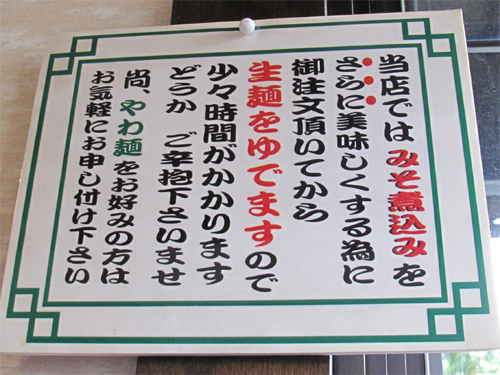 当店では みそ煮込みを
さらに美味しくする為に
御注文頂いてから
生麺をゆでますので
少々時間がかかります
どうか ご辛抱下さいませ
尚、やわ麺をお好みの方は
お気軽にお申し付け下さい